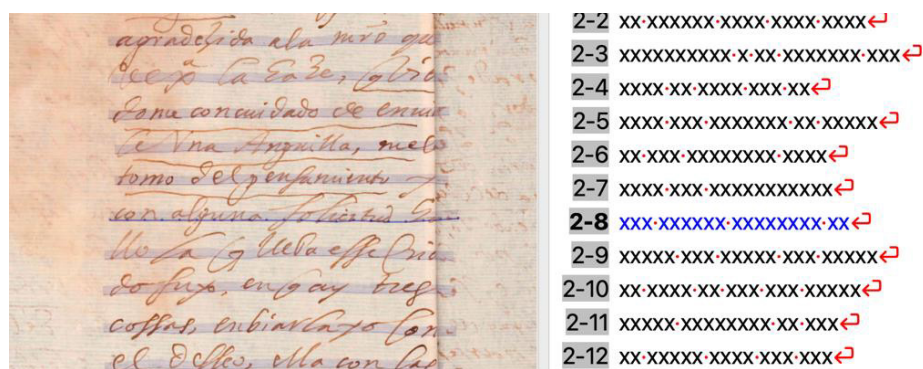 agradesida ala mrd que
la haze,
con cuidado de envia
le Vna Anguilla, melo
tomo del pensamiento y
con alguna solicitud ha
llo la q lleba esse Cria
do suyo, en q ay tres
cossas, enbiarla yo con
el desseo, ella con las
2-2 xx·xxxxxx·xxxx·xxxx·xxxx↵
2-3 xxxxxxxxxx·x·xx·xxxxxxx·xxx↵
2-4 xxxx·xx·xxxx·xxx·xx↵
2-5 xxxx·xxx·xxxxxxx·xx·xxxxx↵
2-6 xx·xxx·xxxxxxxx·xxxx↵
2-7 xxxx·xxx·xxxxxxxxxxx↵
2-8 xxx·xxxxxx·xxxxxxxx·xx↵
2-9 xxxxx·xxx·xxxxx·xxx·xxxxx↵
2-10 xx·xxxx·xx·xxx·xxx·xxxxx↵
2-11 xxxxx·xxxxxxxx·xx·xxx↵
2-12 xx·xxxxx·xxxx·xxx·xxx↵